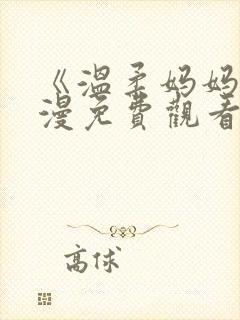 《溫柔妈妈
漫免費觀看
高俅